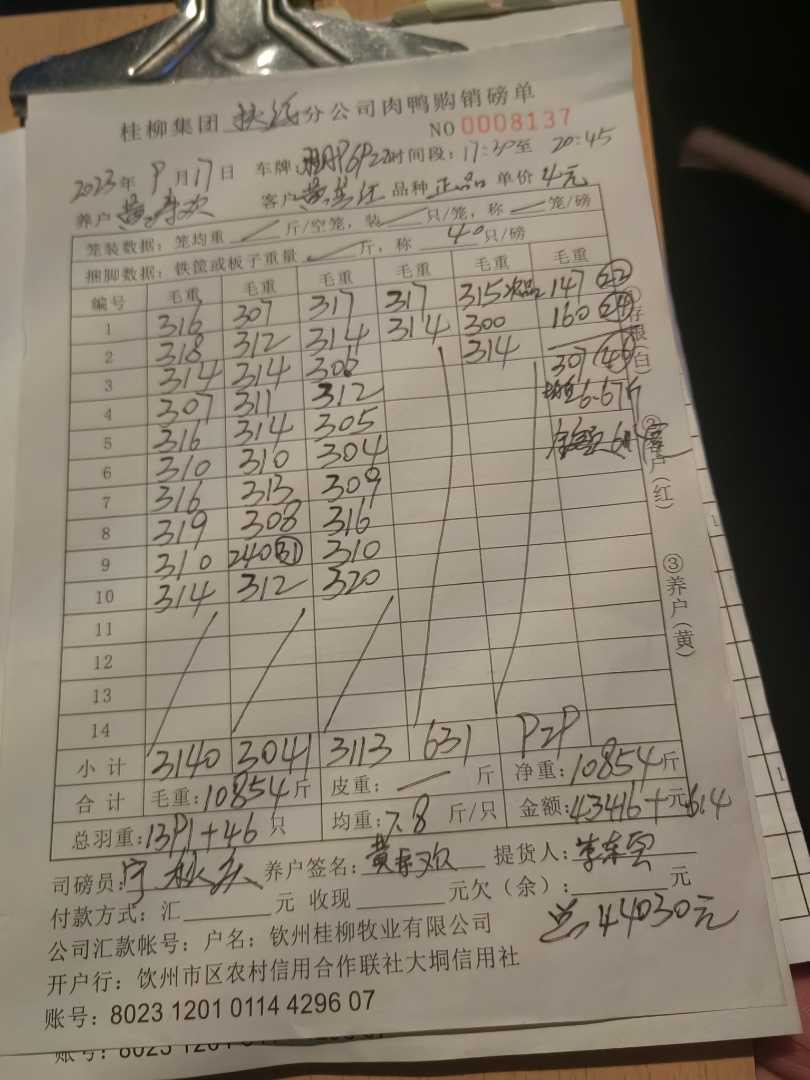 桂柳集团 扶绥 分公司肉鸭购销磅单
NO 0008137
2023年 9月17日 车牌: 时间段: 17:30至 20:45
养户 黄 欢 客户 黄 红 品种 正品 单价 4元
笼装数据: 笼均重 / 斤/空笼, 装 / 只/笼, 称 — 笼/磅
捆脚数据: 铁筐或板子重量 / 斤, 称 40 只/磅
编号 毛重 毛重 毛重 毛重 毛重 毛重
1 316 307 317 317 315 次品 147 (22)
2 318 312 314 314 300 160 (24)
3 314 314 306 314 307 (46)
4 307 311 312 均重6.67斤
5 316 314 305
6 310 310 304
7 316 313 309
8 319 308 316
9 310 240 (31) 310
10 314 312 320
11
12
13
14
小计 3140 3041 3113 631 929
合计 毛重: 10854斤 皮重: — 斤 净重: 10854斤
总羽重: 1391+46 只 均重: 7.8 斤/只 金额: 43416+元614
司磅员: 宁 养户签名: 黄 欢 提货人: 李
付款方式: 汇 元 收现 元欠(余): 元
总44030元
公司汇款帐号: 户名: 钦州桂柳牧业有限公司
开户行: 钦州市区农村信用合作联社大垌信用社
账号: 8023 1201 0114 4296 07
①存根(白)
②客户(红)
③养户(黄)